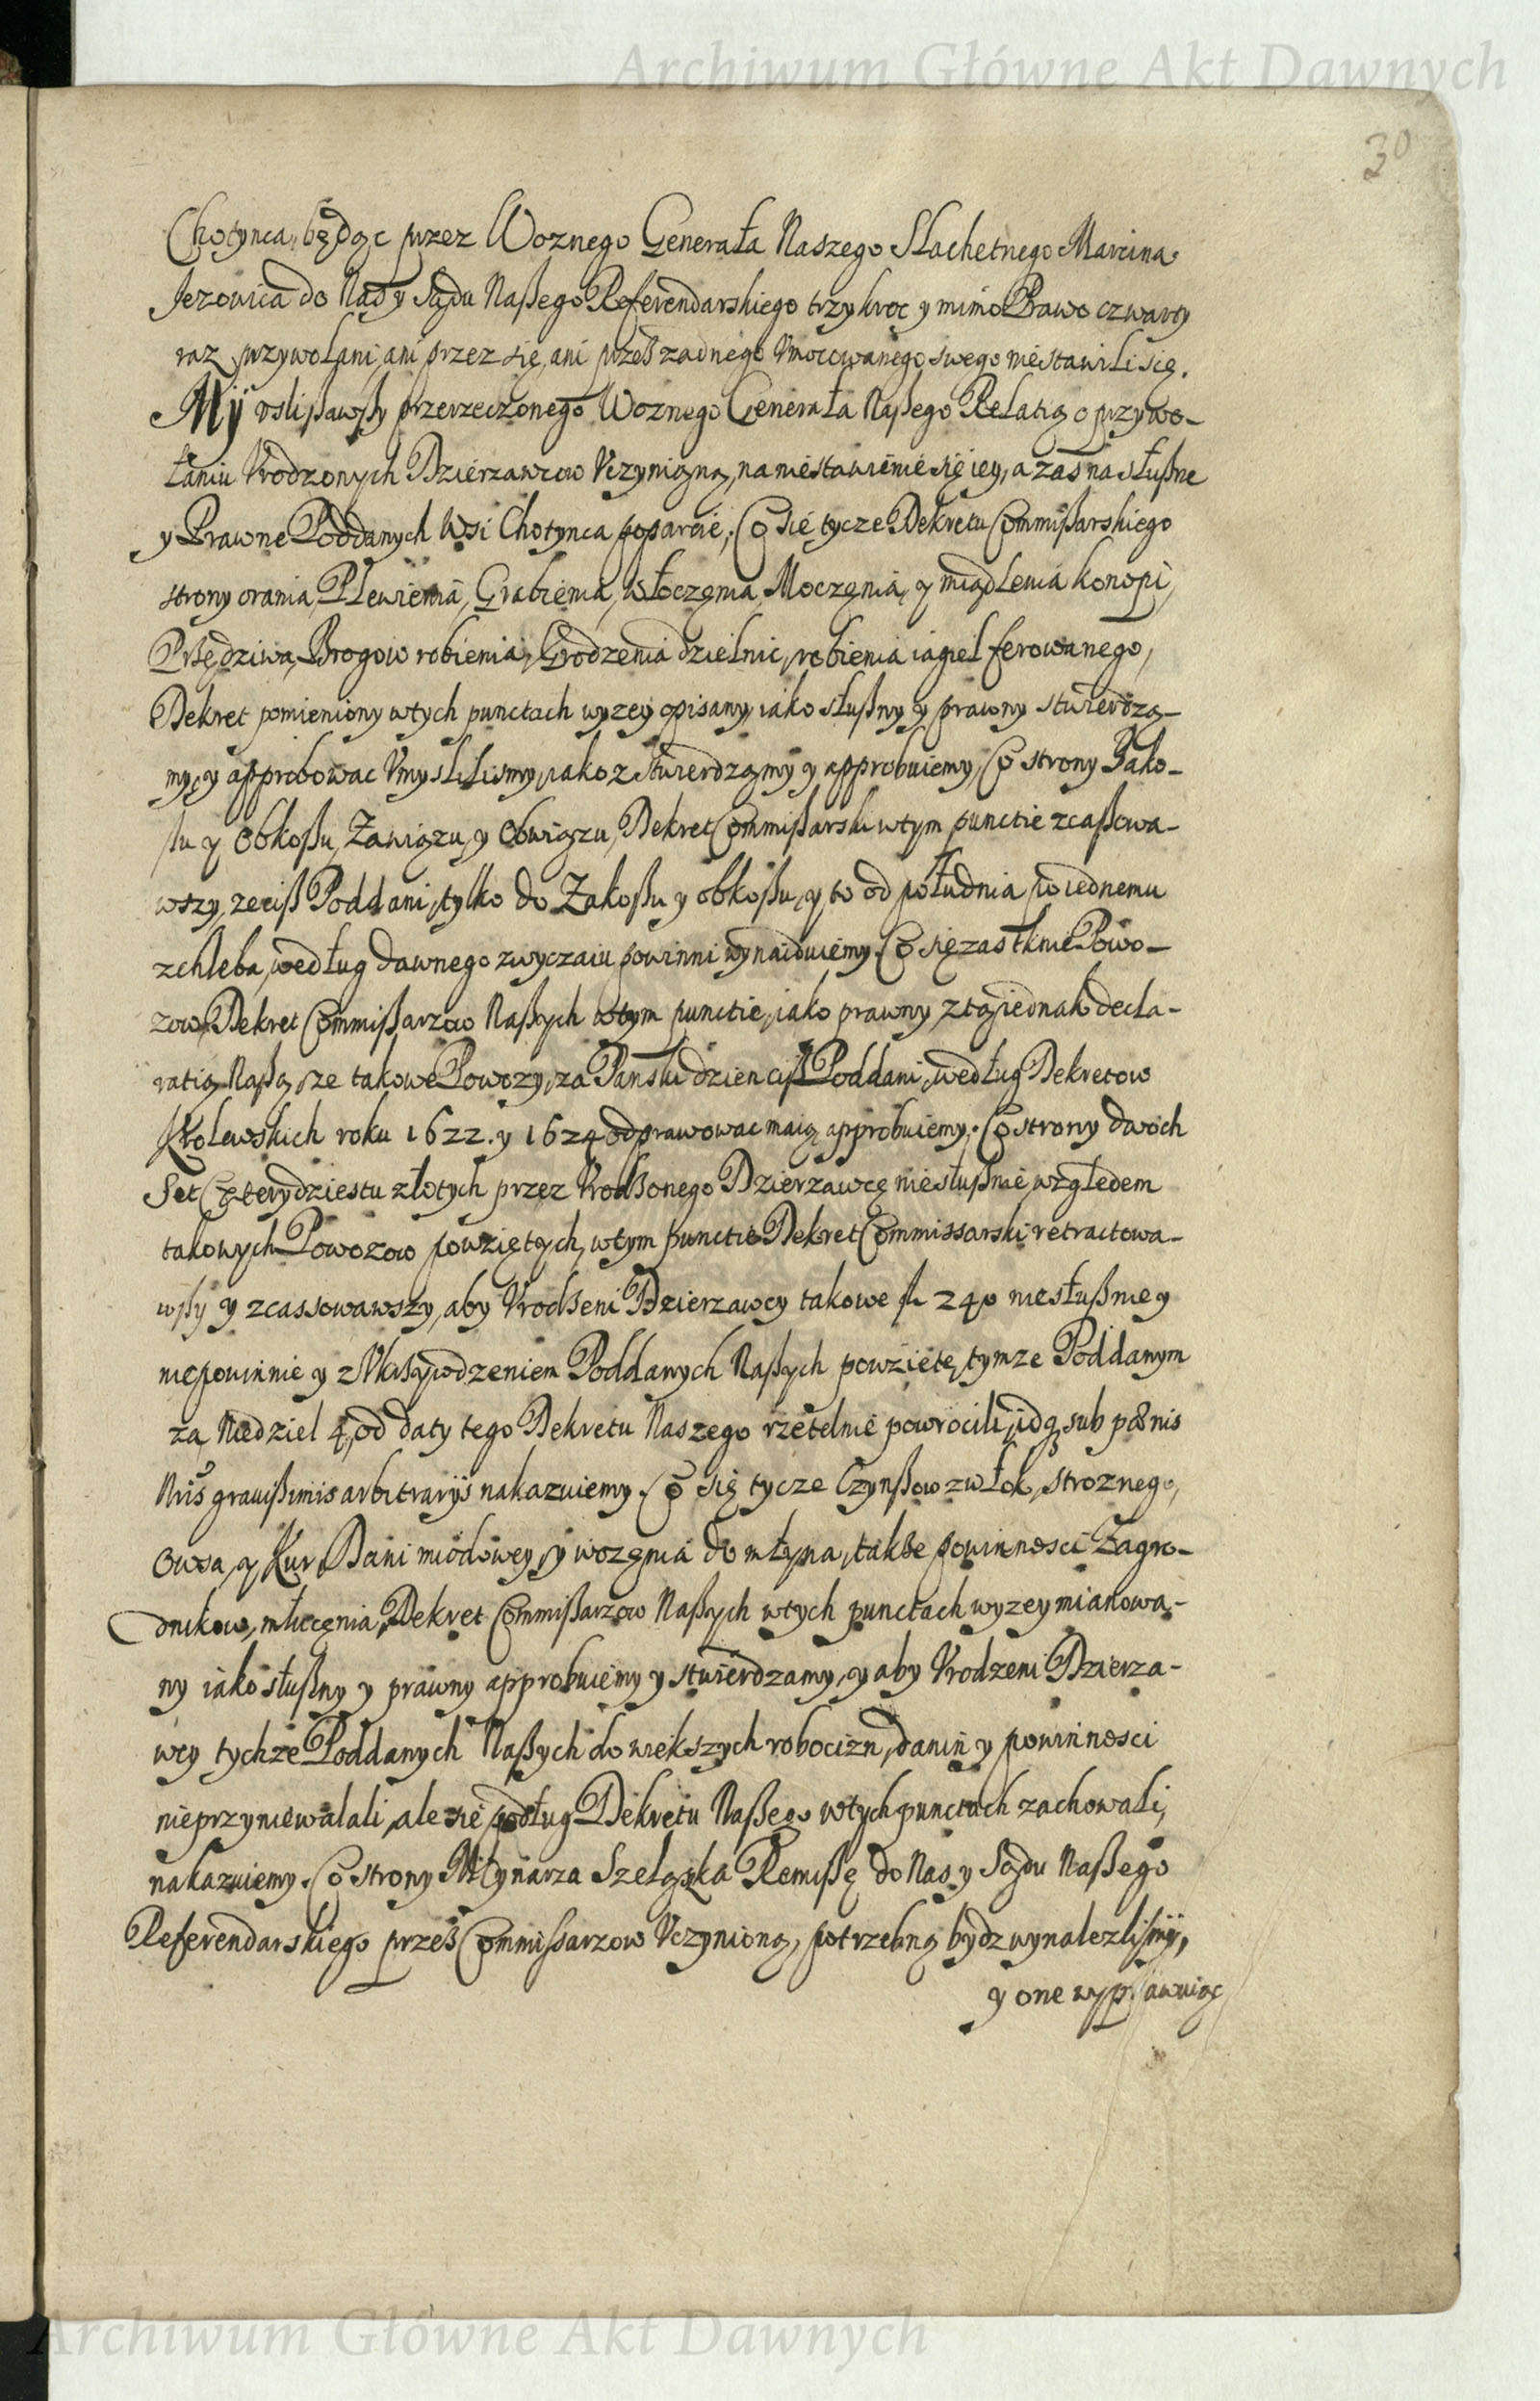 Archiwum Główne Akt Dawnych
30
Chotynca, będąc przez Woznego Generała Naszego Slachetnego Marcina
Jezowica do Nas y Sądu Naßego Referendarskiego trzykroc y mimo Prawo czwarty
raz przywołani, ani przez się, ani przeß zadnego Vmocowanego swego niestawili się.
Mÿ vslißawßy przerzeczonego Woznego Generała Naßego Relatią o przywo-
łaniu Vrodzonych Dzierzawcow Vczynioną, na niestawienie się iey, a zas na słußne
y Prawne Poddanych Wsi Chotynca poparcie, Co sie tycze Dekretu Commißarskiego
strony orania, Plewienia, Grabienia, Włoczęnia, Moczęnia, y miądlenia konopi,
Przędziwa, Brogow robienia, Grodzenia dzielnic, robienia iagieł ferowanego,
Dekret pomieniony wtych punctach wyzey opisany, iako słußny y prawny stwierdzą-
my, y approbowac Vmyslilismy, iakoz stwierdzamy y approbuiemy, Co strony Zako-
ßu y Obkoßu, Zawiązu, y Obwiązu, Dekret Commißarski wtym punctie zcaßowa-
wszy, ze ciß Poddani, tylko do Zakoßu y obkoßu, y to od południa po iednemu
z chleba, według dawnego zwyczaiu powinni wynaiduiemy. Co się zas tknie Powo-
zow, Dekret Commißarzow Naßych wtym punctie, iako prawny z tą iednak decla-
ratią Naßą, ze takowe Powozy, za Panski dzien ciß Poddani, według Dekretow
Krolewskich roku 1622. y 1624 odprawowac maią approbuiemy. Co strony dwoch
Set Czterydziestu złotych przez Vrodzonego Dzierzawcę niesłußnie względem
takowych Powozow powziętych, wtym punctie Dekret Commissarski retractowa-
wßy y zcassowawszy, aby Vrodzeni Dzierzawcy takowe fl 240 niesłußnie y
niepowinnie y z Vkrzywdzeniem Poddanych Naßych powzięte, tymze Poddanym
za Niedziel 4, od daty tego Dekretu Naszego rzetelnie powrocili, idą sub pœnis
Nris grauißimis arbitrarÿs nakazuiemy. Co się tycze Czynßow z włok, stroznego,
Owsa, y Kur, Dani miodowey, y wozęnia do młyna, także powinnosci Zagro-
dnikow, młucęnia, Dekret Commißarzow Naßych wtych punctach wyzey mianowa-
ny iako słußny y prawny approbuiemy y stwierdzamy, y aby Vrodzeni Dzierza-
wcy tychze Poddanych Naßych do wiekszych robocizn, danin y powinnosci
nieprzyniewalali, ale sie podług Dekretu Naßego wtych punctach zachowali,
nakazuiemy. Co strony Młynarza Szelązka Remißę do Nas y Sądu Naßego
Referendarskiego przeß Commissarzow Vczynioną, potrzebną bydz wynalezlismÿ,
y one wyprawuiąc
Archiwum Główne Akt Dawnych